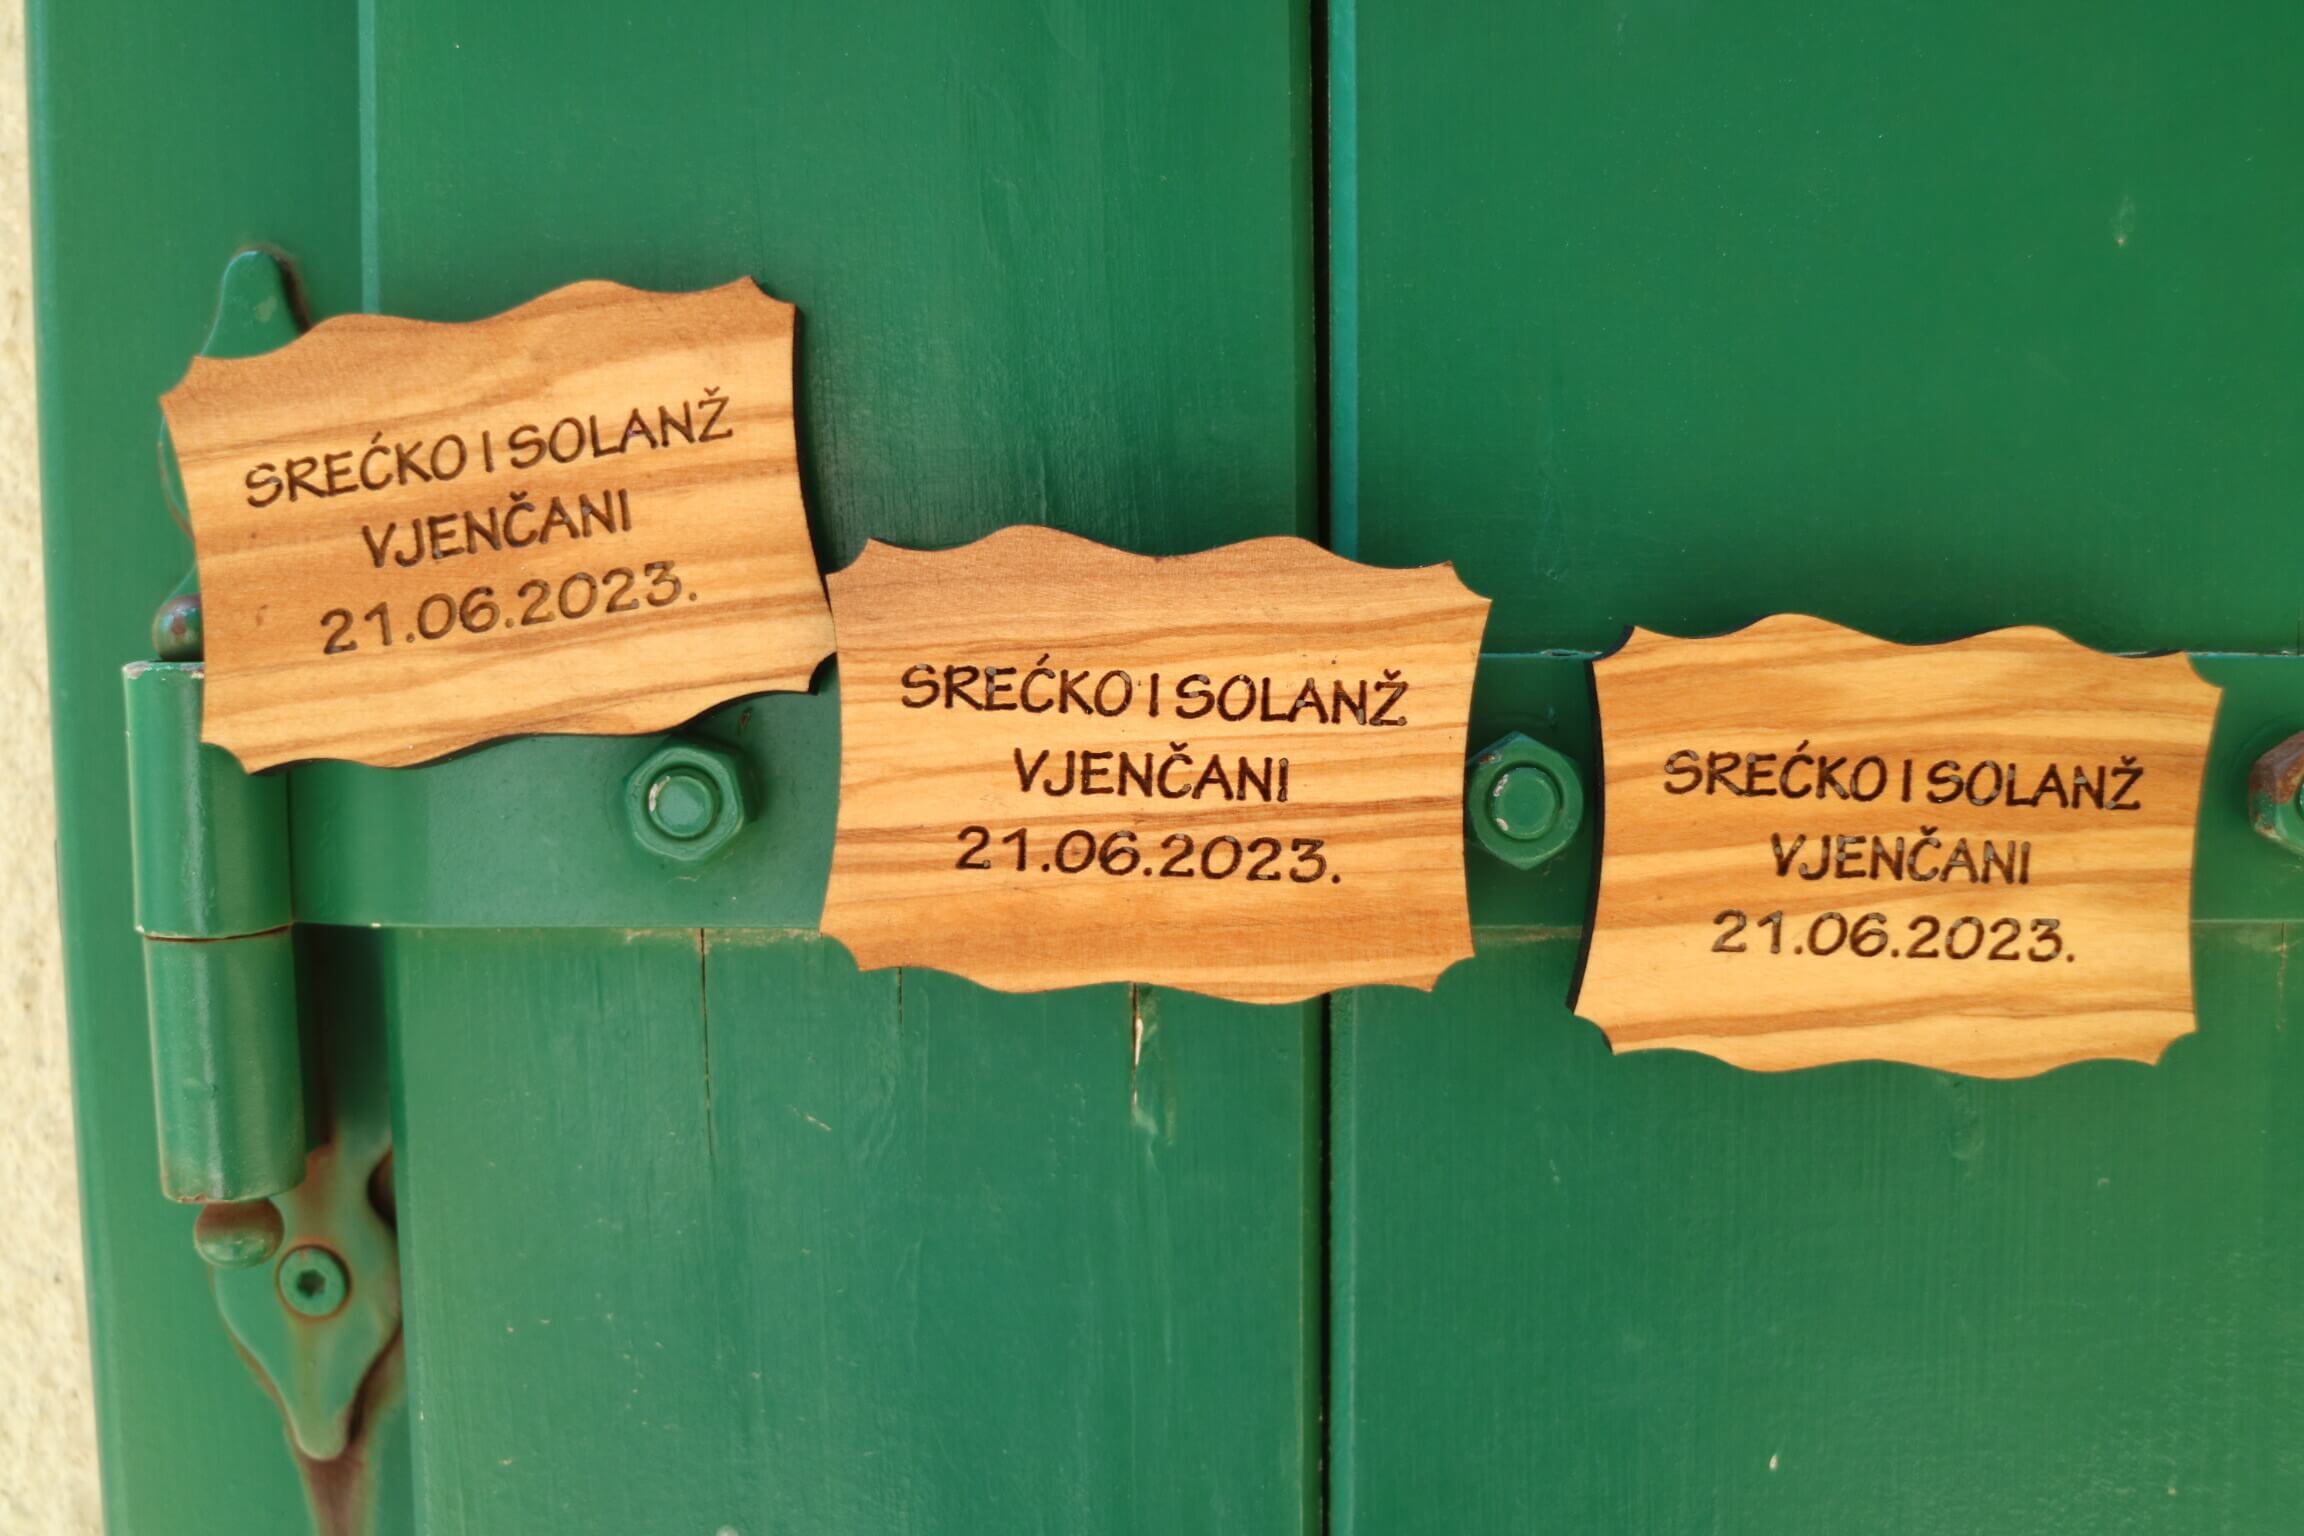 SREĆKO I SOLANŽ
VJENČANI
21.06.2023.
SREĆKO I SOLANŽ
VJENČANI
21.06.2023.
SREĆKO I SOLANŽ
VJENČANI
21.06.2023.